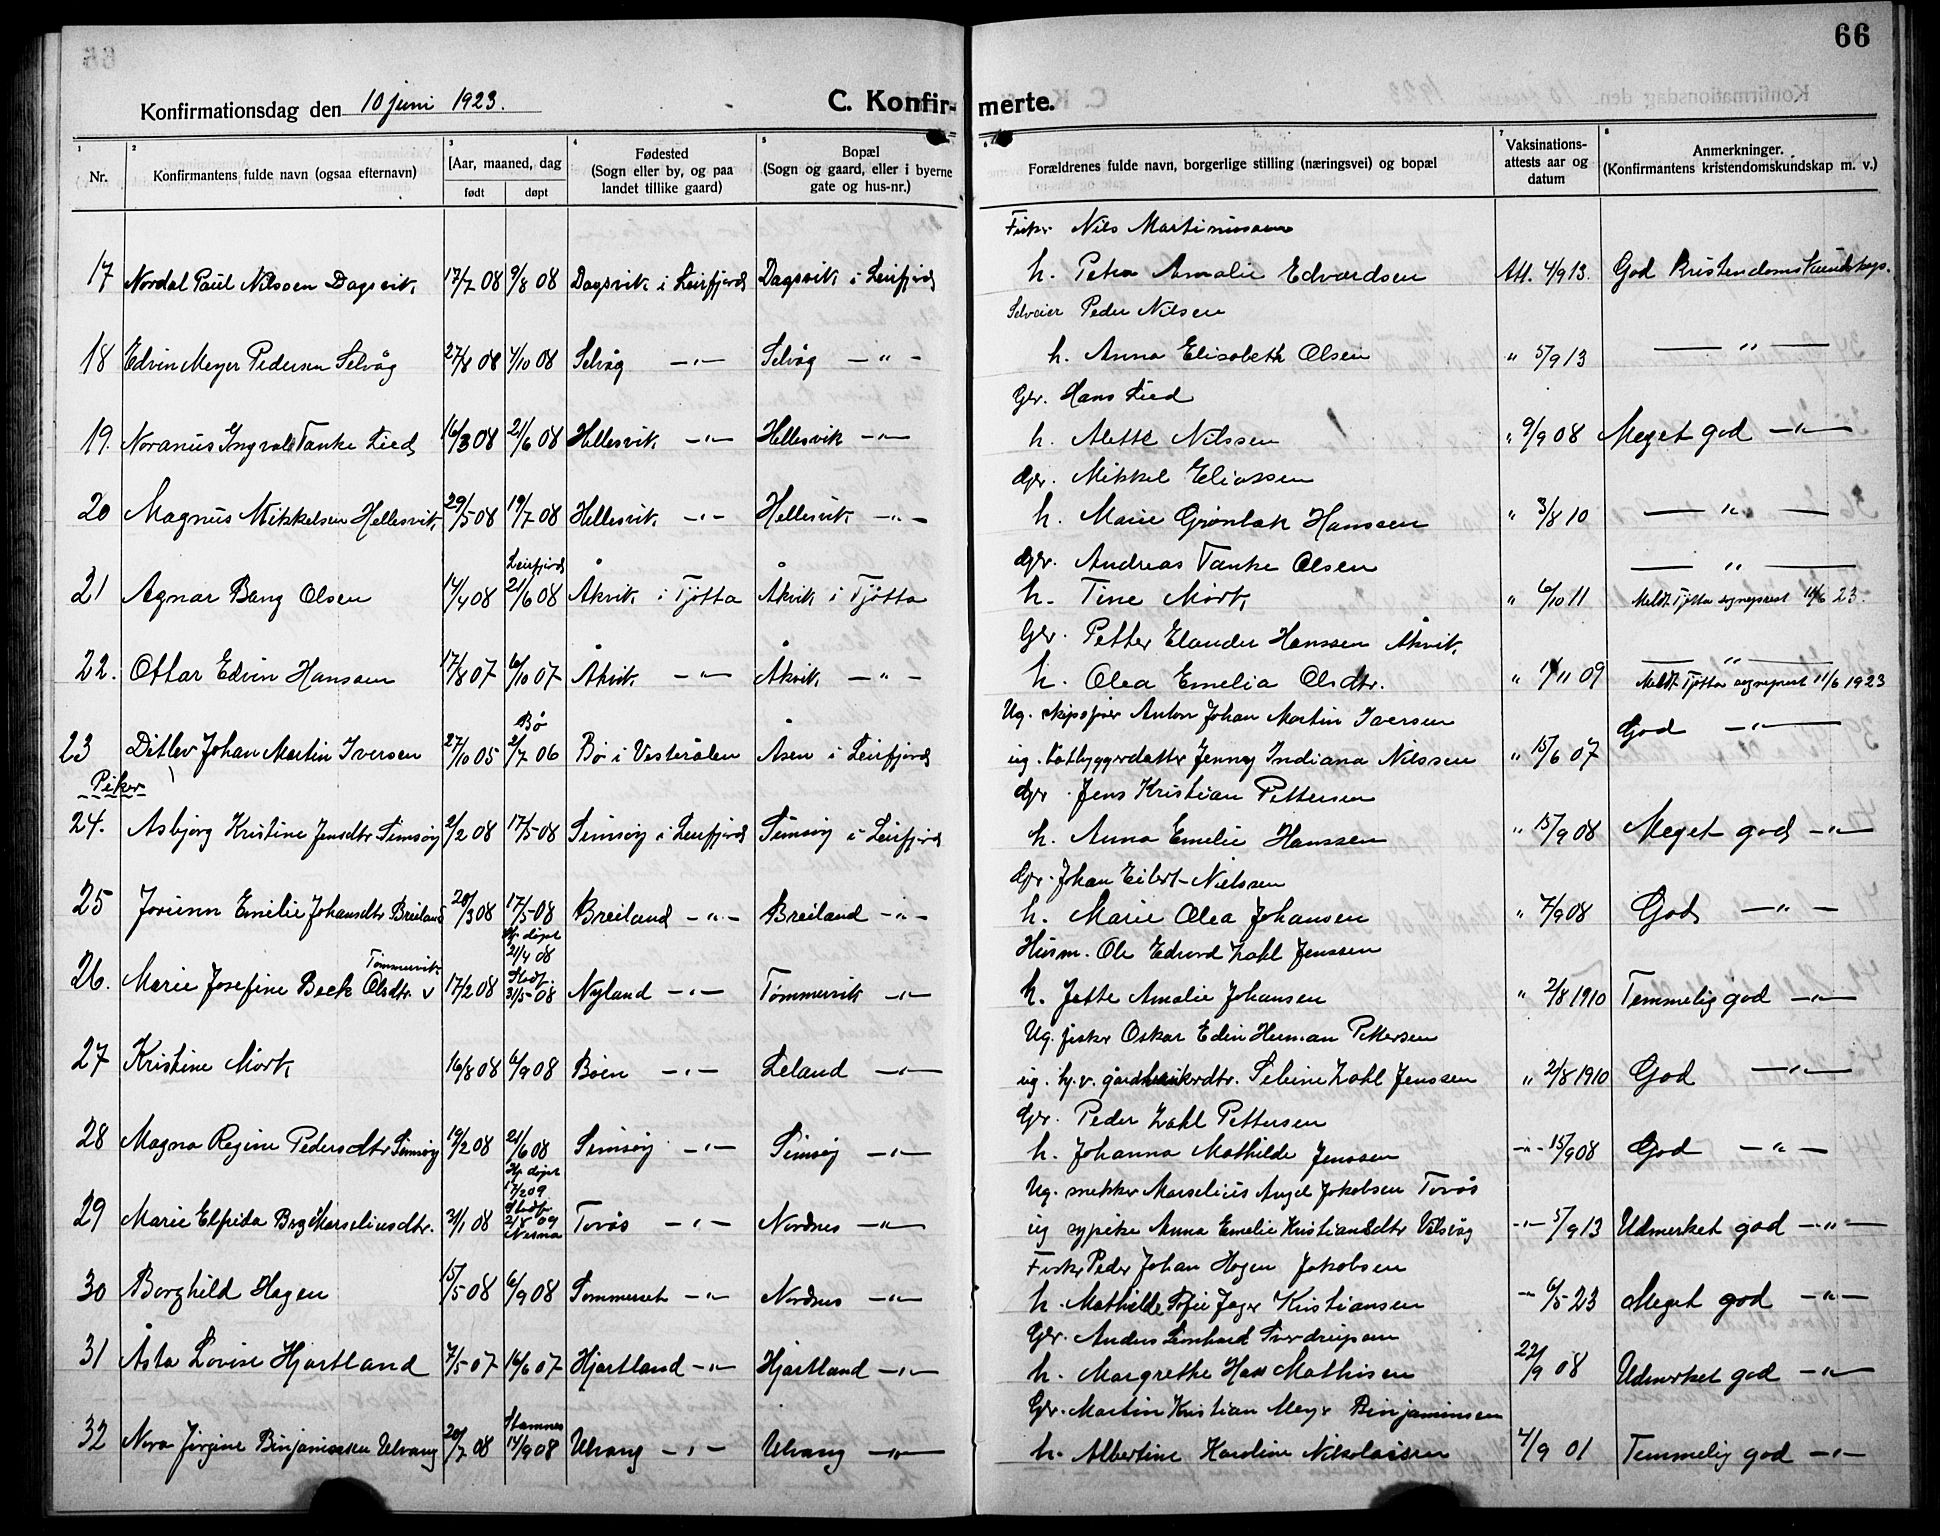 66
Konfirmationsdag den 10 juni 1923. C. Konfirmerte.
1 2 3 4 5 6 7 8
Nr. Konfirmantens fulde navn (ogsaa efternavn) [Aar, maaned, dag født døpt Fødested (Sogn eller by, og paa landet tillike gaard) Bopæl (Sogn og gaard, eller i byerne gate og hus-nr.) Forældrenes fulde navn, borgerlige stilling (næringsvei) og bopæl Vaksinations-attests aar og datum Anmerkninger. (Konfirmantens kristendomskundskap m. v.)
Fisker Nils Martinussen
17 Nordal Paul Nilssen Dagsvik 17/7 08 9/8 08 Dagsvik i Leirfjord Dagsvik i Leirfjord h. Petra Amalie Edvardsen Att. 4/9 13. God kristendomskundskap.
Selveier Peder Nilsen
18 Edvin Meyer Pedersen Selvåg 27/8 08 4/10 08 Selvåg —"— Selvåg —"— h. Anna Elisabeth Olsen " 5/9 13 —"—
Gbr. Hans Lied
19. Noranus Ingvald Tanke Lied 16/3 08 21/6 08 Hellesvik —"— Hellesvik —"— h. Alette Nilssen " 9/9 08 Meget god —"—
Gbr. Mikkel Eliassen
20 Magnus Mikkelsen Hellesvik 29/5 08 19/7 08 Hellesvik —"— Hellesvik —"— h. Marie Grønbæk Hanssen " 3/8 10 —"—
Leirfjord Gbr. Andreas Tanke Olsen —"—
21 Agnar Bang Olsen 14/4 08 21/6 08 Åkvik i Tjøtta Åkvik i Tjøtta h. Tine Mørk " 6/10 11 Meldt Tjøtta sogneprest 11/6 23.
Gbr. Petter Elander Hanssen Åkvik
22. Ottar Edvin Hanssen 17/8 07 6/10 07 Åkvik —"— Åkvik —"— h. Olea Emelia Olsdtr. " 1/11 09 —"— Meldt Tjøtta sogneprest 11/6 1923
Bø Ug. skipsfører Anton Johan Martin Iversen
23 Ditlev Johan Martin Iversen 27/10 05 2/7 06 Bø i Vesterålen Åsen i Leirfjord ug. Jenny Indiana Nilssen " 15/6 07 God —"—
Piker
Gbr. Jens Kristian Pettersen
24. Asbjørg Kristine Jensdtr Simsøy 2/2 08 17/5 08 Simsøy i Leirfjord Simsøy i Leirfjord h. Anna Emelie Hanssen " 15/9 08 Meget god —"—
Gbr. Johan Eilert Nielssen
25 Jorunn Emilie Johansdtr Breiland 20/3 08 17/5 08 Breiland —"— Breiland —"— h. Marie Olea Johansen " 7/9 08 God —"—
Hj. døpt 21/4 08 Husm. Ole Edvard Zahl Jenssen
26. Marie Josefine Beck Olsdtr. Tømmervik v 17/2 08 Stadf. 31/5 08 Nyland —"— Tømmervik —"— h. Jette Amalie Johansen " 2/8 1910 Temmelig god —"—
Ug. fisker Oskar Edin Herman Pettersen
27 Kristine Mørk 16/8 08 6/9 08 Bøen —"— Leland —"— ug. hj.v. gårdbrukerdtr. Seline Zahl Jenssen " 2/8 1910 God —"—
Gbr. Peder Zahl Pettersen
28 Magna Regine Pedersdtr Simsøy 19/2 08 21/6 08 Simsøy —"— Simsøy —"— h. Johanna Mathilde Jenssen —"— 15/9 08 God —"—
Hj. døpt 17/2 09 Ug. snekker Marselius Angel Jakobsen Torås
29 Marie Elfrida Berg Marseliusdtr. 21/1 08 Stadf. 2/8 09 Nesna Torås —"— Nordnes —"— ug sypike Anna Emelie Kristiansdtr Valsvåg —"— 5/9 13 Udmerket god —"—
Fisker Peder Johan Hagen Jakobsen
30 Borghild Hagen 15/5 08 6/9 08 Sommerset —"— Nordnes —"— h. Mathilde Sofie Jager Kristiansen —"— 6/5 23 Meget god —"—
Gbr. Anders Leonhard Sverdrupsen
31 Åsta Lovise Hjartland 7/5 07 16/6 07 Hjartland —"— Hjartland —"— h. Margrethe Hass Mathisen 22/9 08 Udmerket god —"—
Stamnes Gbr. Martin Kristian Meyer Binjaminsen
32 Nora Jirgine Binjaminsen Ulvang 20/7 08 14/9 08 Ulvang —"— Ulvang —"— h. Albertine Karoline Nikolaisen 4/9 01 Temmelig god —"—